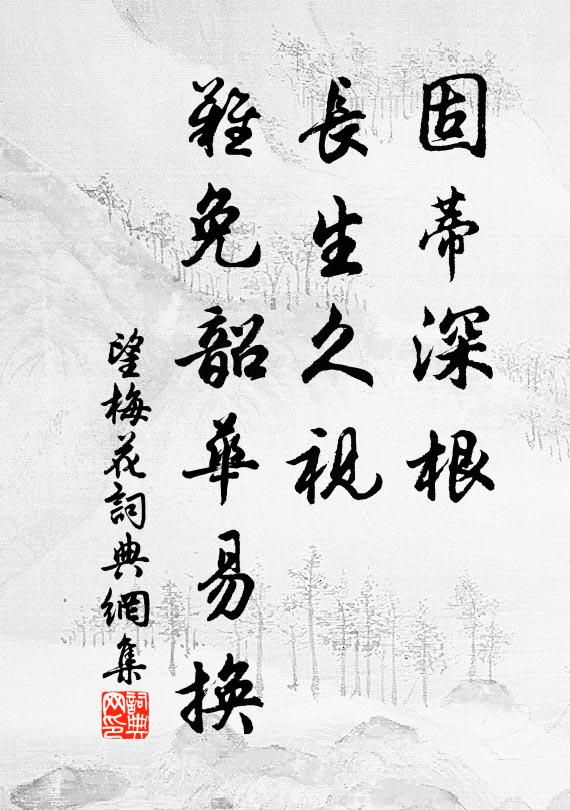 固蒂深根
長生久視
難免韶華易換
望梅花詞典網集
詞典
网印